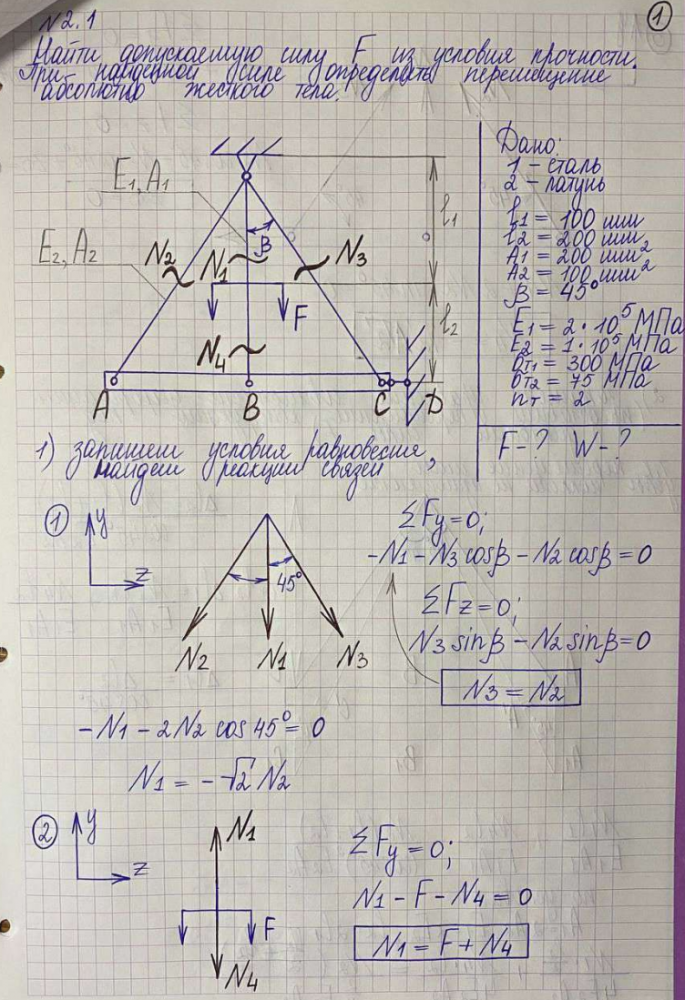 N2.1
①
Найти допускаемую силу F из условия прочности.
При найденной силе определить перемещение
абсолютно жесткого тела.
Дано:
1 - сталь
2 - латунь
l1 = 100 мм
l2 = 200 мм
A1 = 200 мм²
A2 = 100 мм²
β = 45°
E1 = 2·10⁵ МПа
E2 = 1·10⁵ МПа
σт1 = 300 МПа
σт2 = 75 МПа
nт = 2
F-? W-?
E1, A1
E2, A2
N2
N1
N3
β
l1
F
l2
N4
A
B
C
D
1) запишем условия равновесия,
найдем реакции связей
①
y
z
45°
N2
N1
N3
ΣFy = 0;
-N1 - N3 cosβ - N2 cosβ = 0
ΣFz = 0;
N3 sinβ - N2 sinβ = 0
N3 = N2
-N1 - 2N2 cos 45° = 0
N1 = -√2 N2
②
y
z
N1
F
N4
ΣFy = 0;
N1 - F - N4 = 0
N1 = F + N4